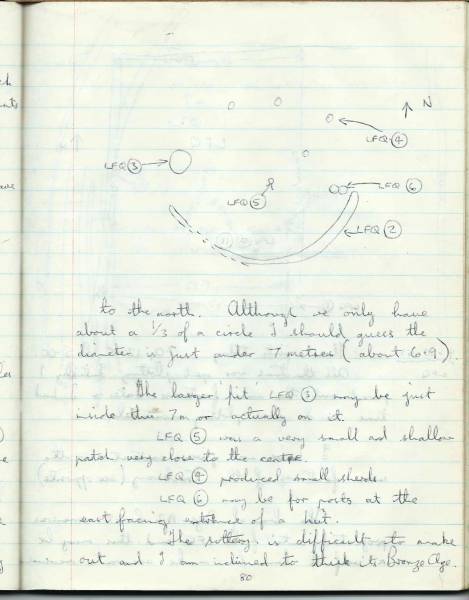 N
LFQ 4
LFQ 3
LFQ 6
LFQ 5
LFQ 2
to the north. Although we only have
about a 1/3 of a circle I should guess the
diameter is just under 7 metres (about 6.9).
The larger 'pit' LFQ 3 may be just
inside this 7m or actually on it.
LFQ 5 was a very small and shallow
patch very close to the centre.
LFQ 4 produced small sherds.
LFQ 6 may be for posts at the
east facing entrance of a hut.
The pottery is difficult to make
out and I am inclined to think its Bronze Age.
80